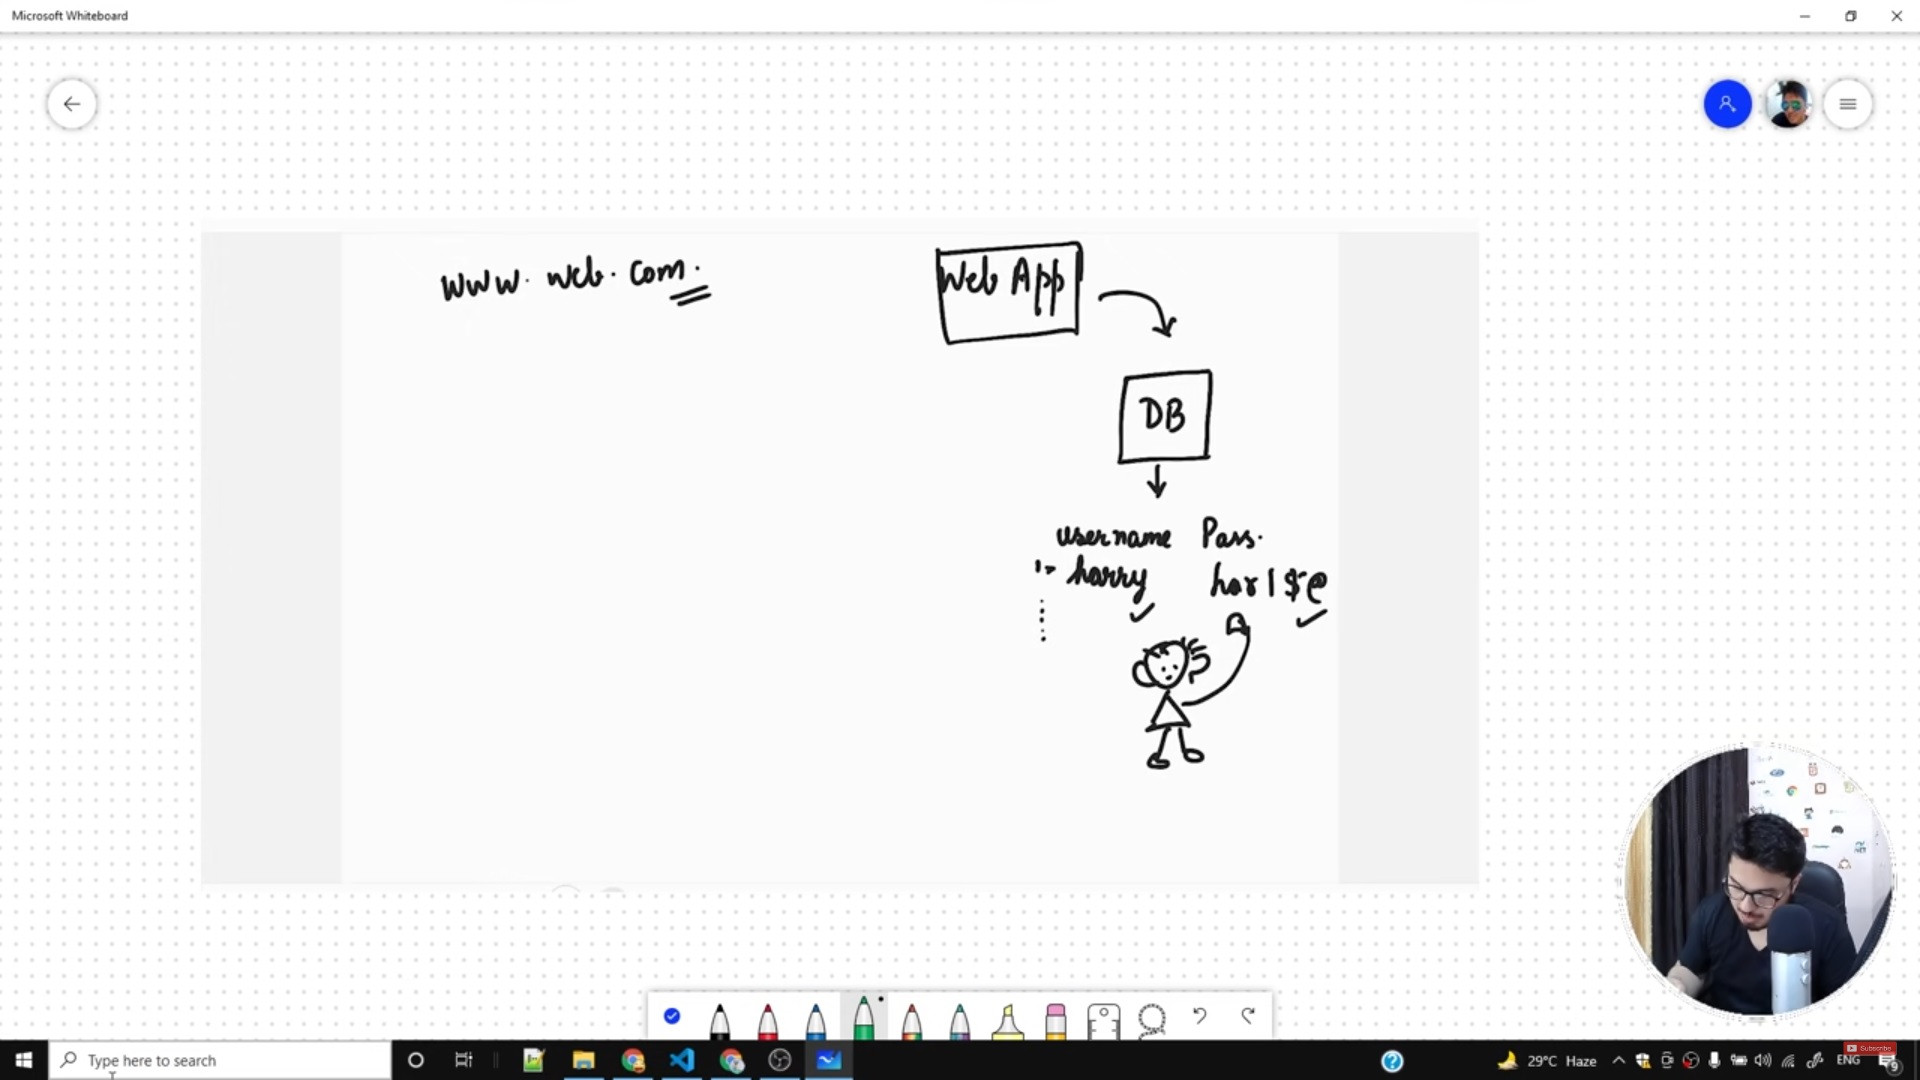 Microsoft Whiteboard
www. web. com.
Web App
DB
username Pass.
1- harry har1$@
Type here to search
29°C Haze
ENG
Subscribe
9